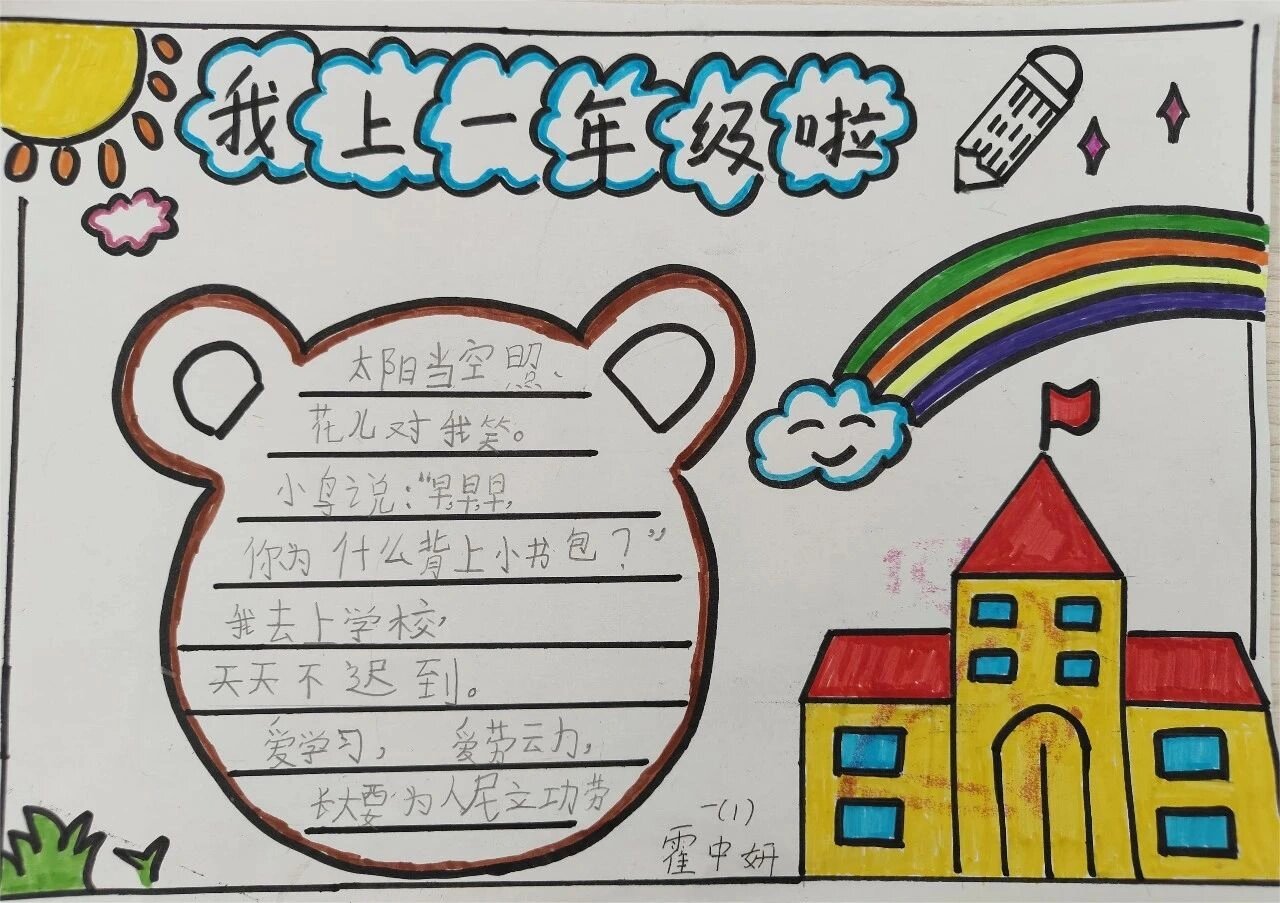 我上一年级啦
太阳当空照、
花儿对我笑。
小鸟说:“早,早,早,
你为什么背上小书包?”
我去上学校,
天天不迟到。
爱学习, 爱劳动,
长大要为人民立功劳
一(1)
霍中妍